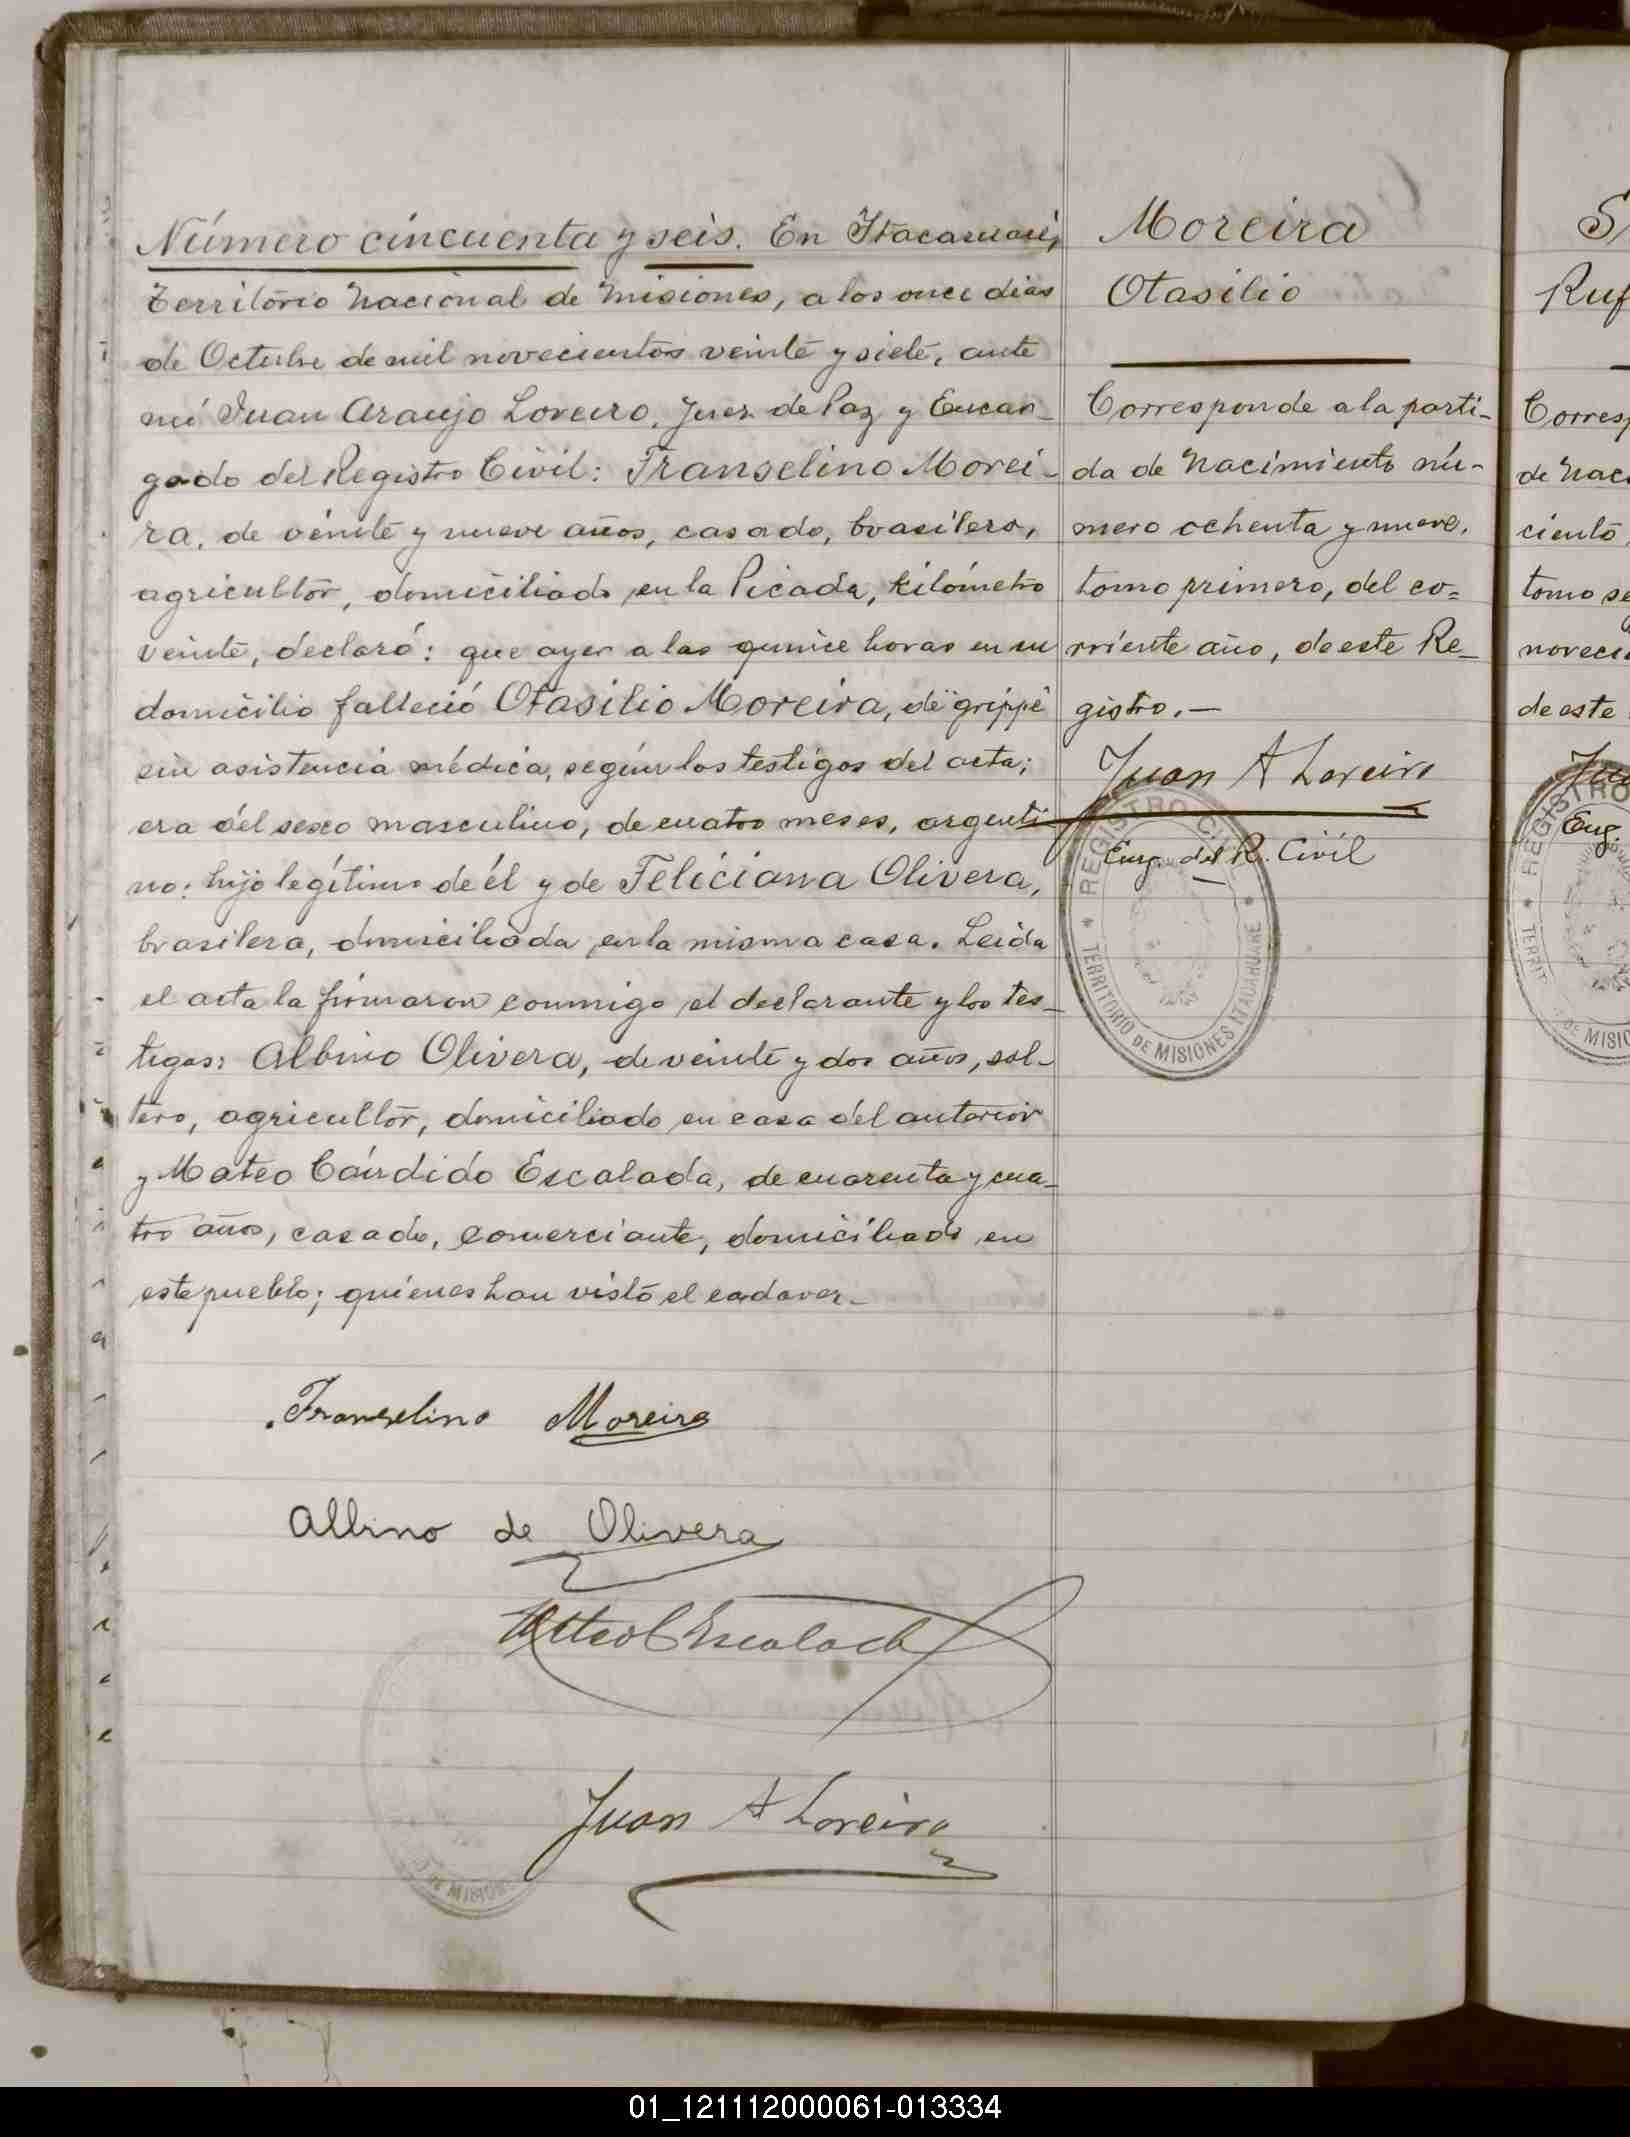 Número cincuenta y seis. En Itacaruaré,
Territorio Nacional de Misiones, a los once dias
de Octubre de mil novecientos veinte y siete, ante
mí Juan Araujo Loreiro, Juez de Paz y Encar-
gado del Registro Civil: Franselino Morei-
ra, de veinte y nueve años, casado, brasilero,
agricultor, domiciliado en la Picada, kilómetro
veinte, declaró: que ayer a las quince horas en su
domicilio falleció Otasilio Moreira, de grippe
sin asistencia médica, según los testigos del acta;
era del sexo masculino, de cuatro meses, argenti-
no: hijo legítimo de él y de Feliciana Olivera,
brasilera, domiciliada en la misma casa. Leida
el acta la firmaron conmigo el declarante y los tes-
tigos: Albino Olivera, de veinte y dos años, sol-
tero, agricultor, domiciliado en casa del anterior
y Mateo Cándido Escalada, de cuarenta y cua-
tro años, casado, comerciante, domiciliado en
este pueblo; quienes han visto el cadaver.-
Franselino Moreira
Albino de Olivera
Mateo C Escalada
Juan A Loreiro
Moreira
Otasilio
Corresponde a la parti-
da de Nacimiento nú-
mero ochenta y nueve,
tomo primero, del co-
rriente año, de este Re-
gistro.-
Juan A Loreiro
Enc. del R. Civil
REGISTRO CIVIL
TERRITORIO DE MISIONES ITACARUARE
DE MISIONES
Ruf
Corresp
de Naci
ciento
tomo se
noveci
de este
Enc.
REGISTRO
TERRIT
DE MISIO
01_121112000061-013334